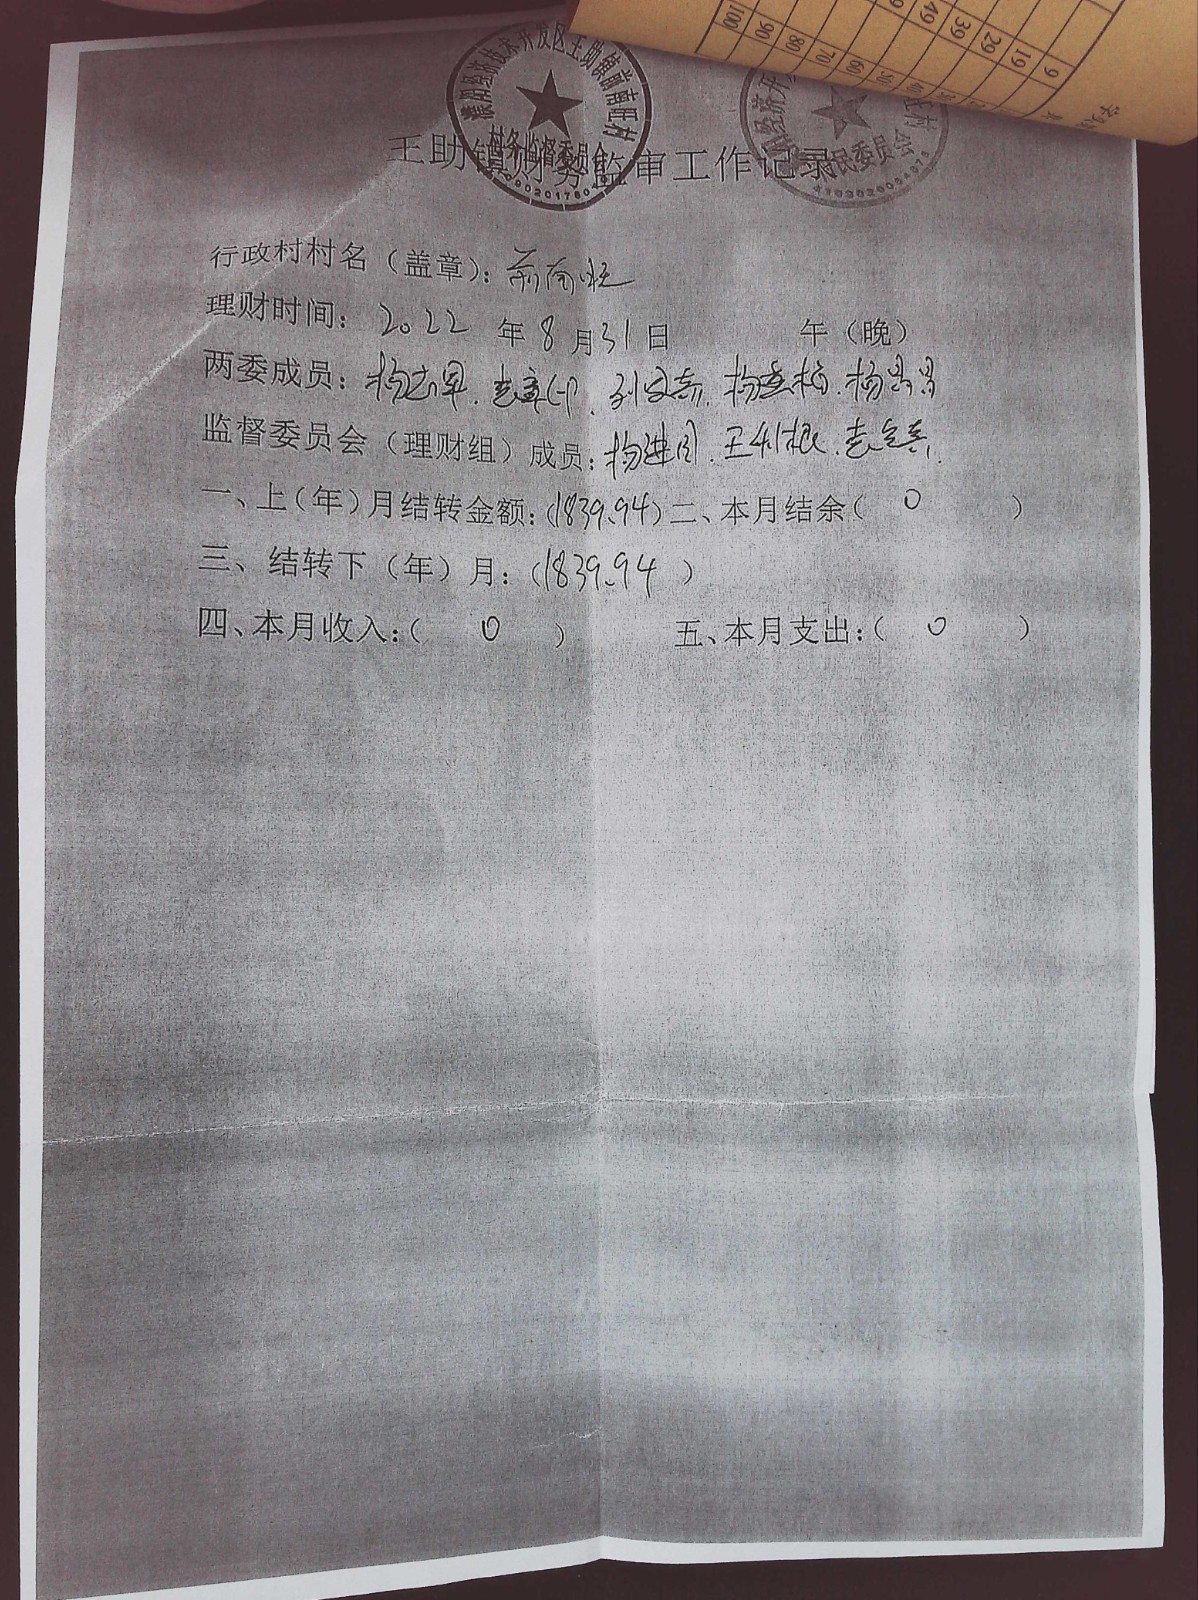 9 19 29 39 49
50 60 70 80 90 100
濮阳经济技术开发区王助镇前南旺村
村务监督委员会
村民委员会
王助镇财务监审工作记录
行政村村名（盖章）：前南旺
理财时间：2022年8月31日 午（晚）
两委成员：杨志军.
监督委员会（理财组）成员：杨进周.王利根.
一、上（年）月结转金额：（1839.94）二、本月结余（ 0 ）
三、结转下（年）月：（1839.94 ）
四、本月收入：（ 0 ） 五、本月支出：（ 0 ）